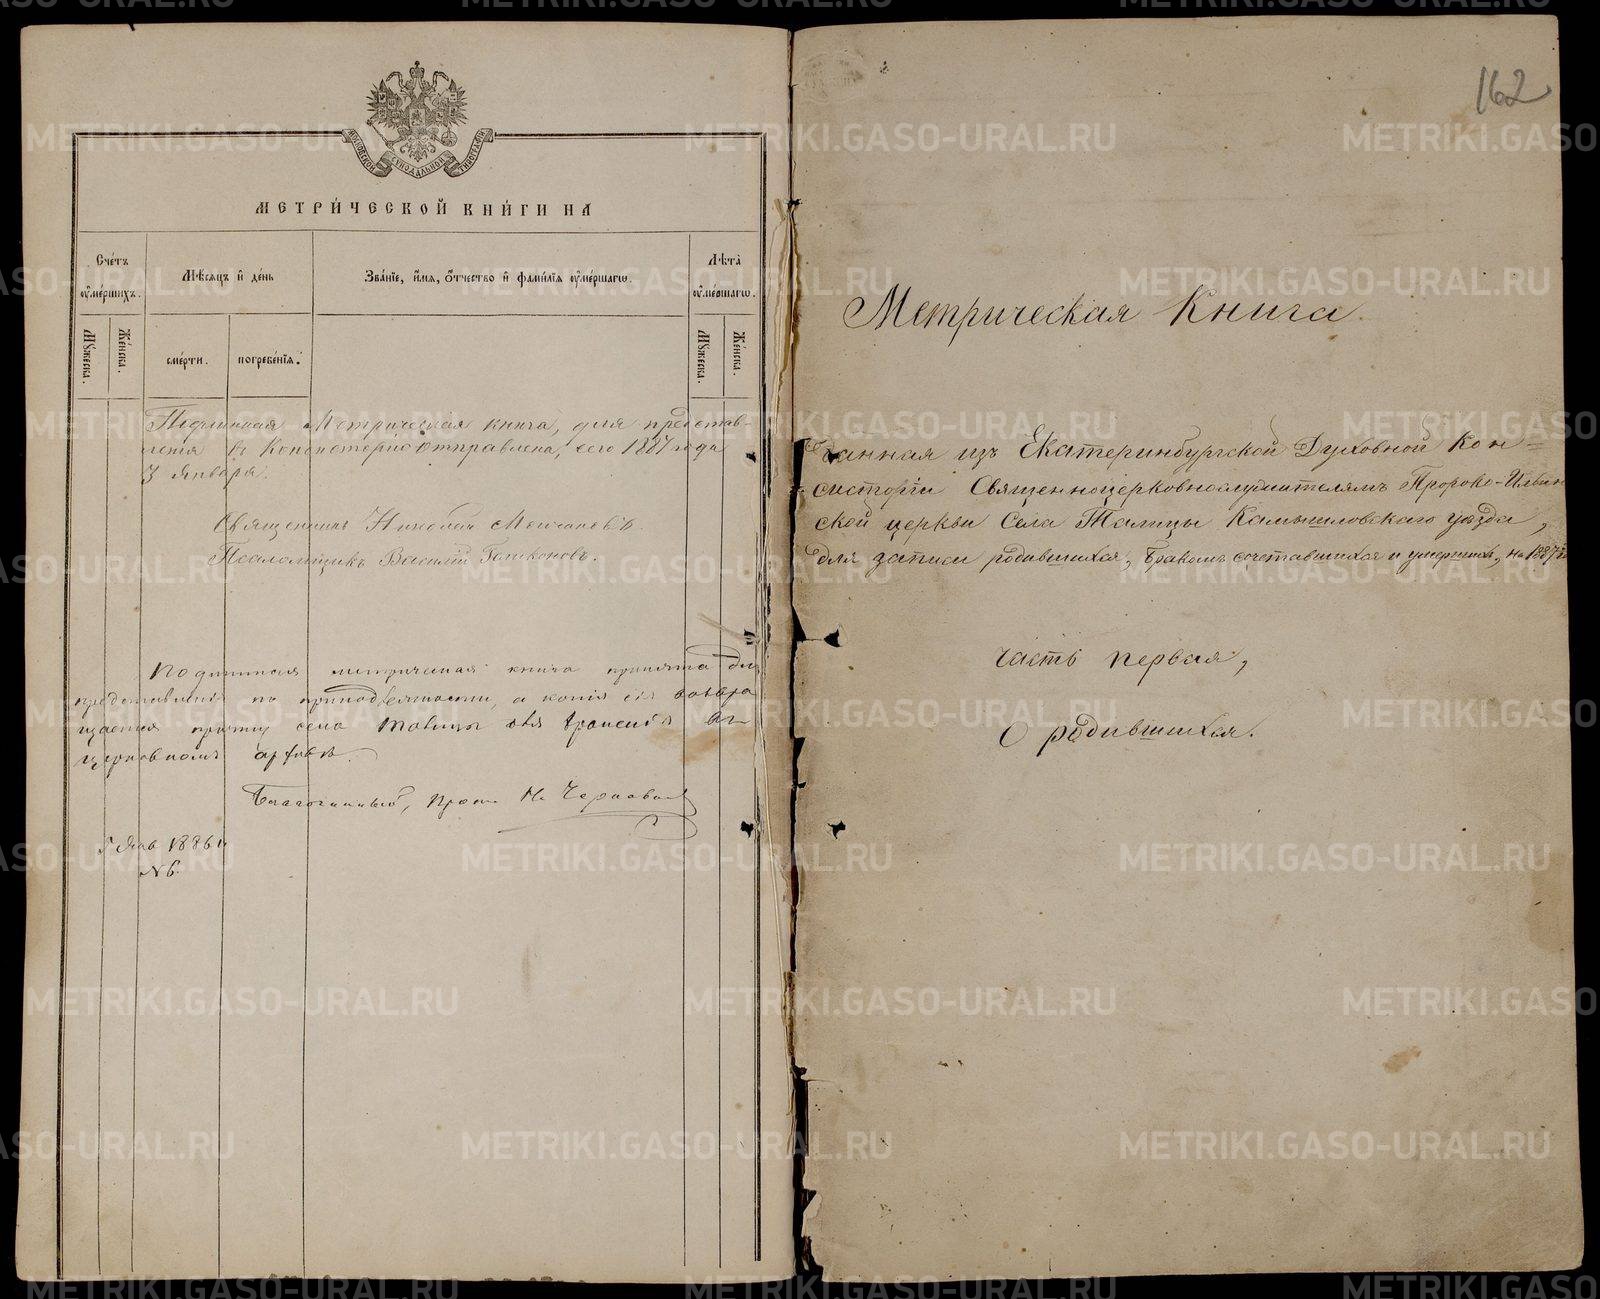 МОСКОВСКОЙ СУНОДАЛЬНОЙ ТИПОГРАФІИ
МЕТРИ́ЧЕСКОЙ КНИ́ГИ НА
Сче́тъ ᲂу҆ме́ршихъ.
Мѣ́сяцъ и҆ де́нь
Зва́нїе, и҆́мя, ѻ҆́тчество и҆ фами́лїя ᲂу҆ме́ршагѡ.
Лѣ́та ᲂу҆ме́ршагѡ.
Мꙋ́жеска.
Же́нска.
сме́рти.
погребе́нїя.
Мꙋ́жеска.
Же́нска.
Подлинная Метрическая книга, для представ-
ленія в Консисторію отправлена, сего 1887 года
3 Января.
Священникъ Николай
Псаломщикъ Василій
Подлинная метрическая книга принята для
представленія по принадлежности, а копія ея возвра
щается причту села Талицы для храненія въ
церковномъ архивѣ.
Благочинный,
5 Янв 1886 г
№ 6.
162
Метрическая Книга.
Данная изъ Екатеринбургской Духовной Кон=
систоріи Священноцерковнослужителямъ Пророко-Ильин
ской церкви Села Талицы Камышловскаго уѣзда,
для записи родившихся, бракомъ сочетавшихся и умершихъ, на 1887 г.
Часть первая,
О родившихся.
METRIKI.GASO-URAL.RU